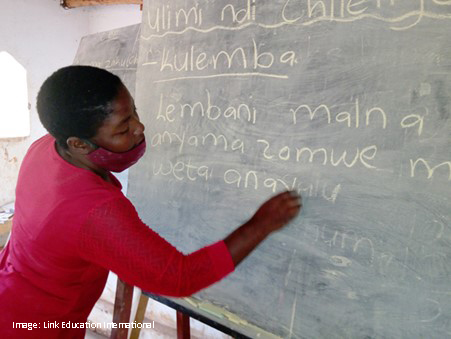 Ulimi ndi Chilengedwe
- Kulemba
Lembani maina
anyama zomwe m
weta anayi
Image: Link Education International